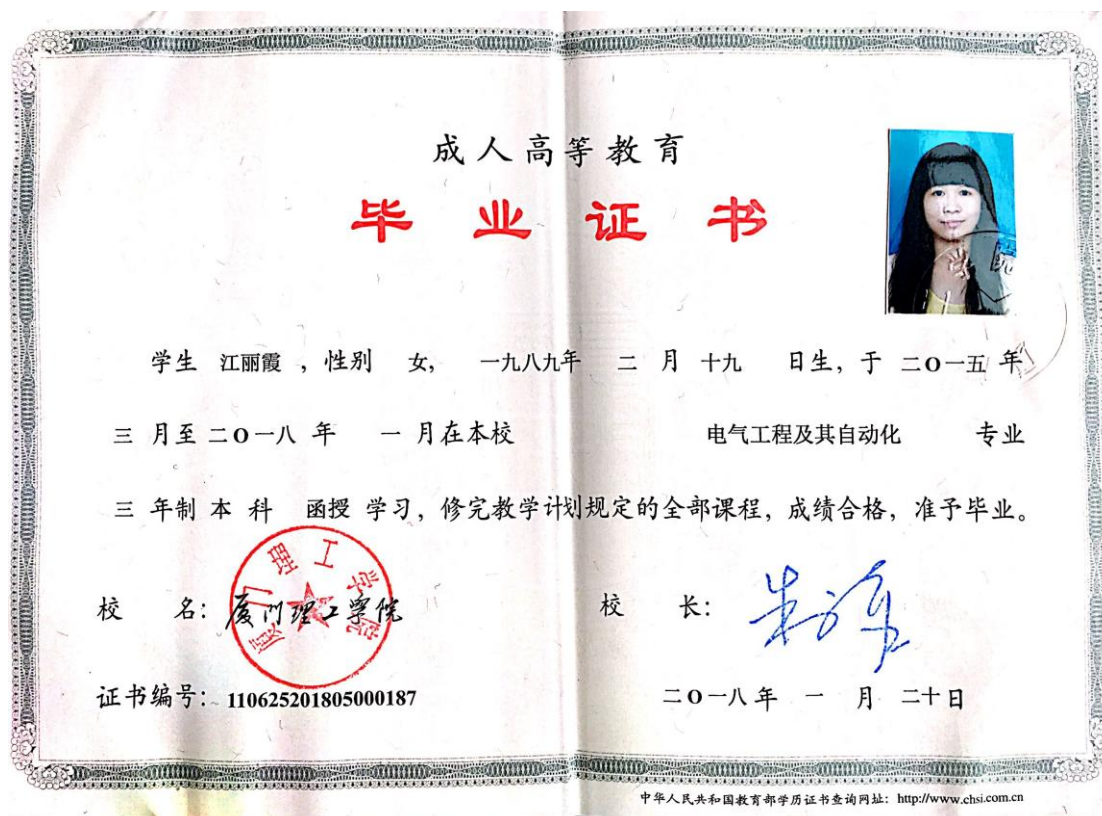 成人高等教育
毕业证书
学生 江丽霞 ，性别 女， 一九八九年 二 月 十九 日生，于 二O一五 年
三 月至 二O一八 年 一 月在本校 电气工程及其自动化 专业
三 年制 本 科 函授 学习，修完教学计划规定的全部课程，成绩合格，准予毕业。
厦门理工学院
校 名：厦门理工学院 校 长：
证书编号：110625201805000187 二O一八 年 一 月 二十日
中华人民共和国教育部学历证书查询网址：http://www.chsi.com.cn